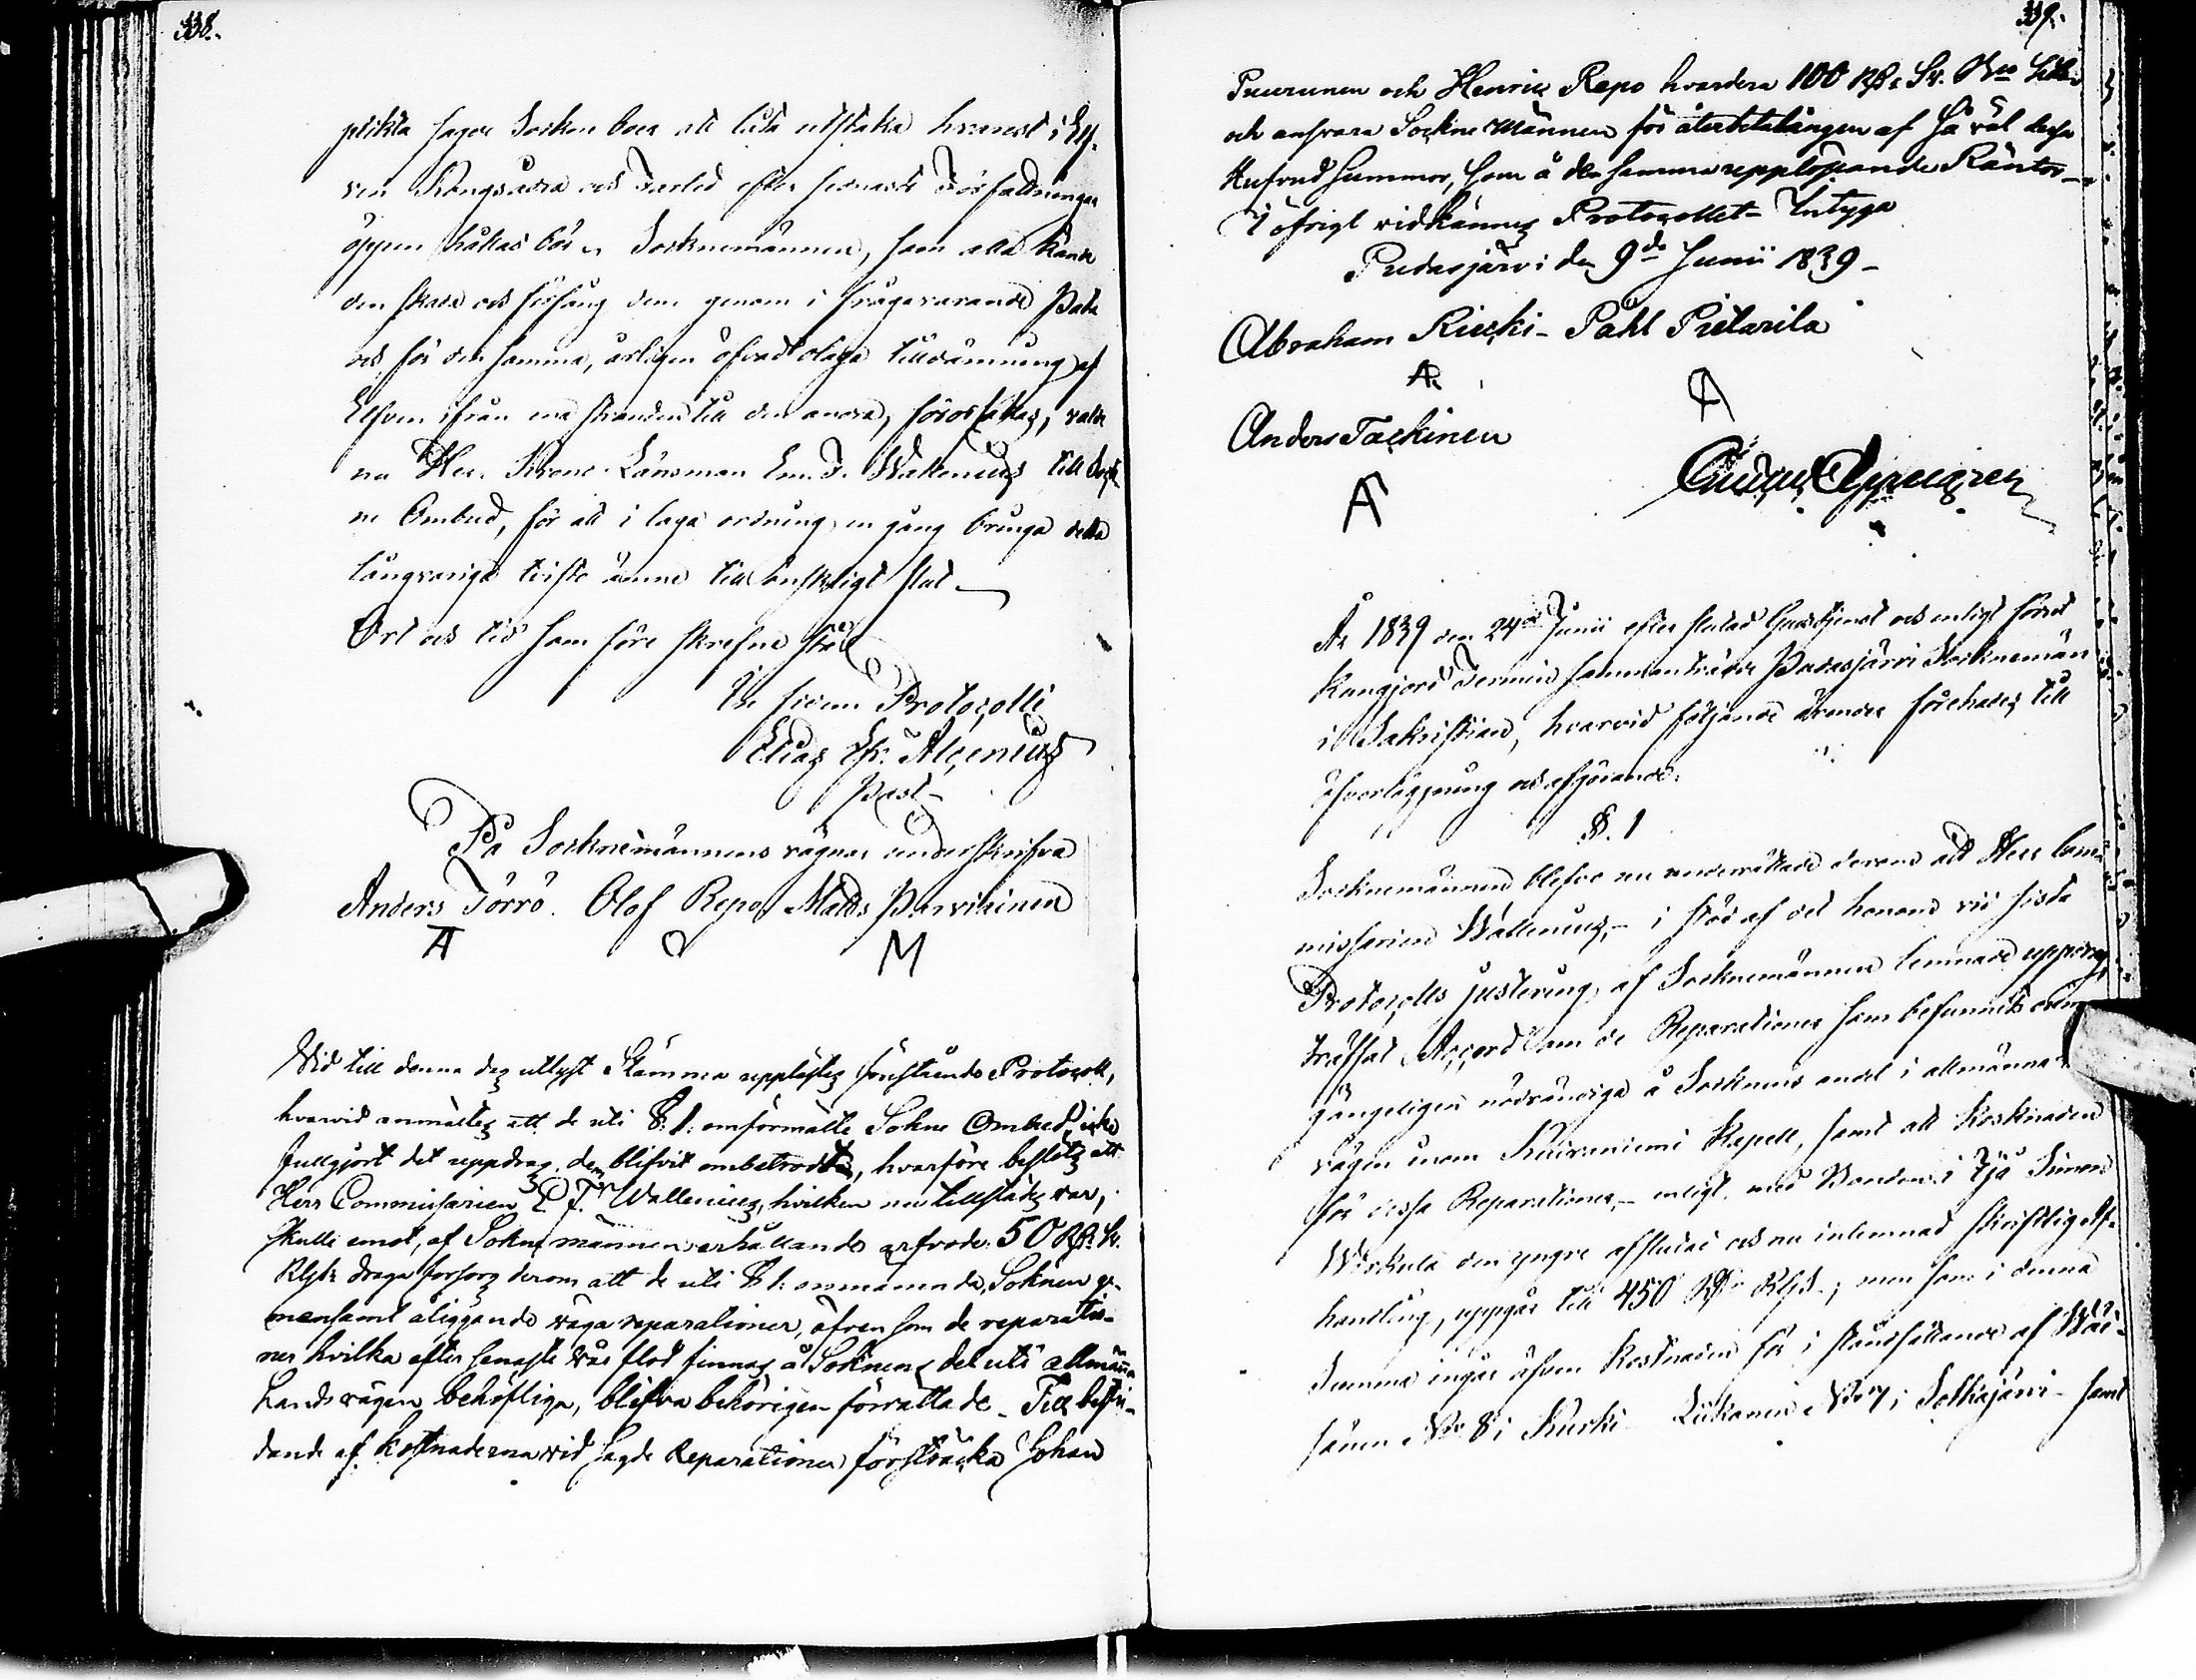 338.
plikta sagde Socken boer att låta utstaka hvarest i Elf-
ven Kongsådra och Farled efter senaste Författningar
öppen hållas bör. Socknemännen, som alla kände
den skada och förfång dem genom i frågavarande Pata
och för den samma, årligen öfvad olaga tilldämning af
Elfven ifrån ena stranden till den andra, förorsakas, valde
nu Her. Krono Länsman Em. F. Wallenius till Sock-
ne Ombud, för att i laga ordning en gång bringa detta
långvariga tviste ämne till önskeligt slut
Ort och tid som före skrefne står
In fidem Protocolli
Elias Ef. Alcenius
Past.
På Socknemännens vägnar underskrifva
Anders Törrö. Olof Repo Matts Parviainen
A O M
Vid till denna dag utlyst Stämma upplästes förestående Protocoll,
hvarvid anmältes att de uti §. 1. omförmälte Sokne Ombud, icke
fullgjort det uppdrag dem blifvit ombetrodt, hvarföre beslöts att
Herr Commissarien E. F. Wallenius, hvilken nu tillstädes var,
skulle emot, af Sokne männen erhållande arfvode 50 R. Sv.
Rgds draga forsorg derom att de uti § 1. omnämnda, Soknen ge-
mensamt åliggande väga reparationer, äfven som de reparatio-
ner hvilka efter senaste vår flod finnas å Soknens del uti allmänna
Landsvägen behöfliga, blifva behörigen förrättade. Till bestri-
dande af kostnaderna vid sagde Reparationer förstracka Johan
339.
Puurunen och Henric Repo hvardera 100 R. Sv. Bco
och ansvara Sockne Männen för återbetalningen af så väl dessa
Hufvud summor, som å den samma upplöpande Räntor
I öfrigt vidkännes Protocollet. Intyga
Pudasjärvi den 9de Junii 1839
Abraham Riecki Påhl Pietarila
A A
Anders Tackinen
A
År 1839 den 24de Junii efter slutad Gudstjenst och enligt förut
kungjord Termin sammanträdde Pudasjärvi Socknemän
i Sakristian, hvarvid följande ärender förehades till
öfverläggning och afgörande.
§. 1
Socknemännen blefvo nu underrättade derom att Herr Com-
missarien Wallenius, i stöd af det honom vid sista
Protocolls justering af Socknemännen lemnade uppdrag,
träffat Accord om de Reparationer som befunnits
gängeligen nödvändiga å Socknens andel i allmänna
vägen inom Kuivaniemi Kapell, samt att Kostnaden
för dessa Reparationer, enligt med Bonden i Ijå Simon
Wirkula den yngre afslutad och nu inlemnad skriftlig Af-
handling, uppgår till 450 R. Rgds; men som i denna
Summa ingår äfven Kostnaden för i ståndsättande af
No 8 i Kurki No 7 i Jolhajärvi samt